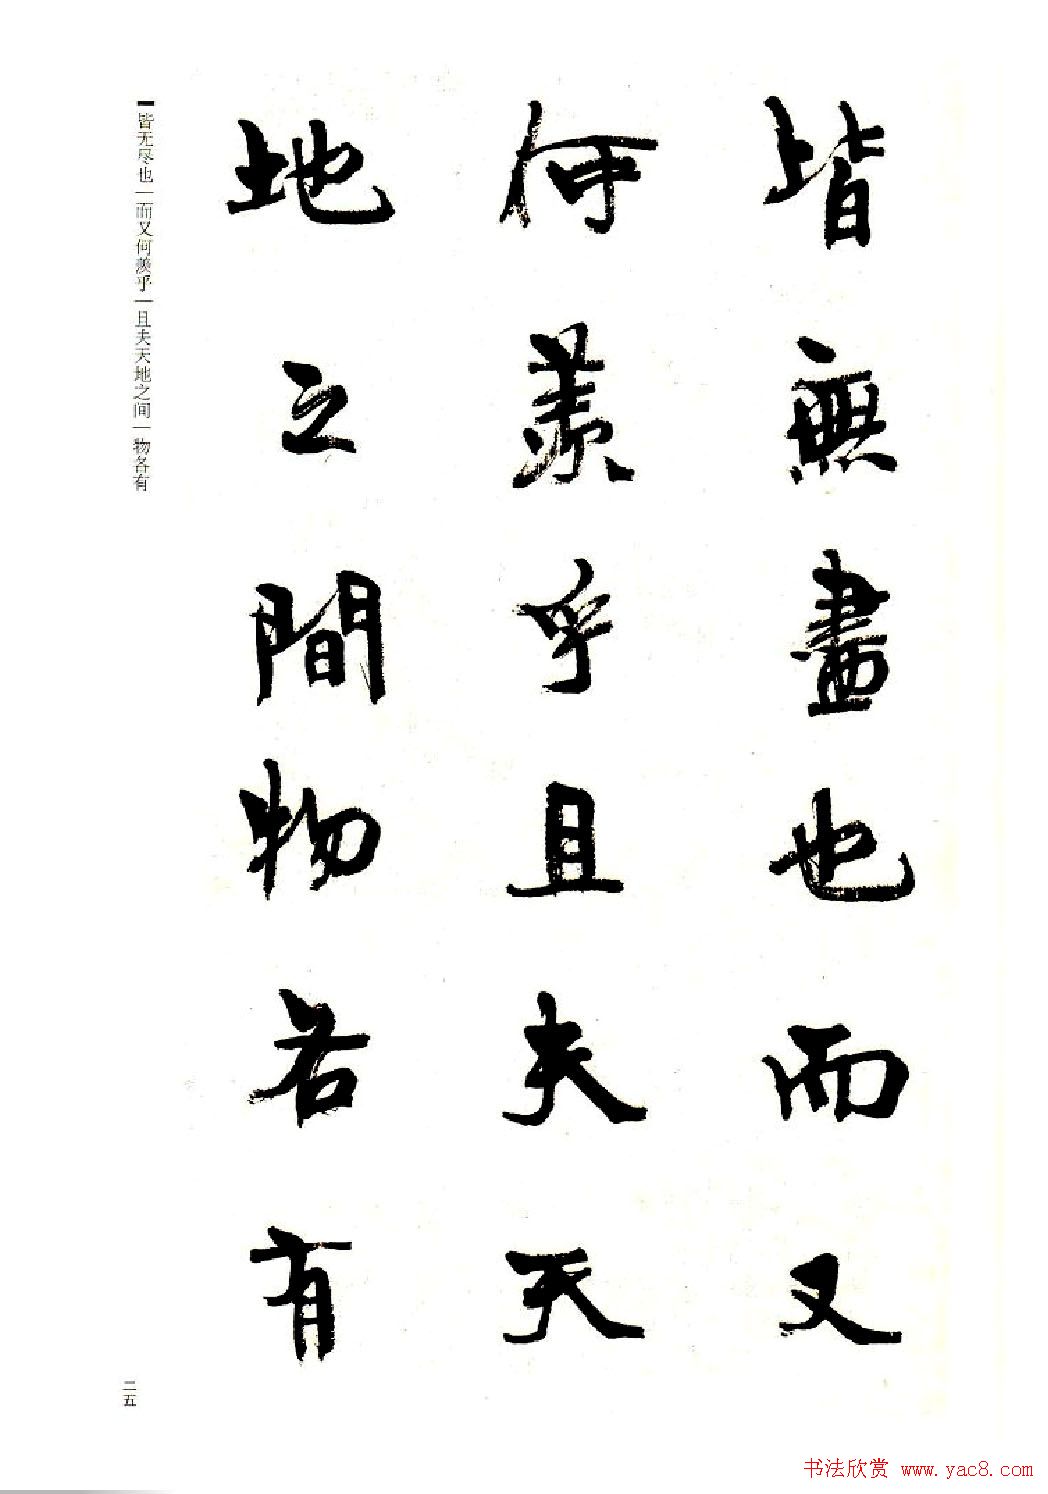 皆無盡也而又
何羨乎且夫天
地之間物各有
皆无尽也|而又何羡乎|且夫天地之间|物各有
二五
书法欣赏 www.yac8.com